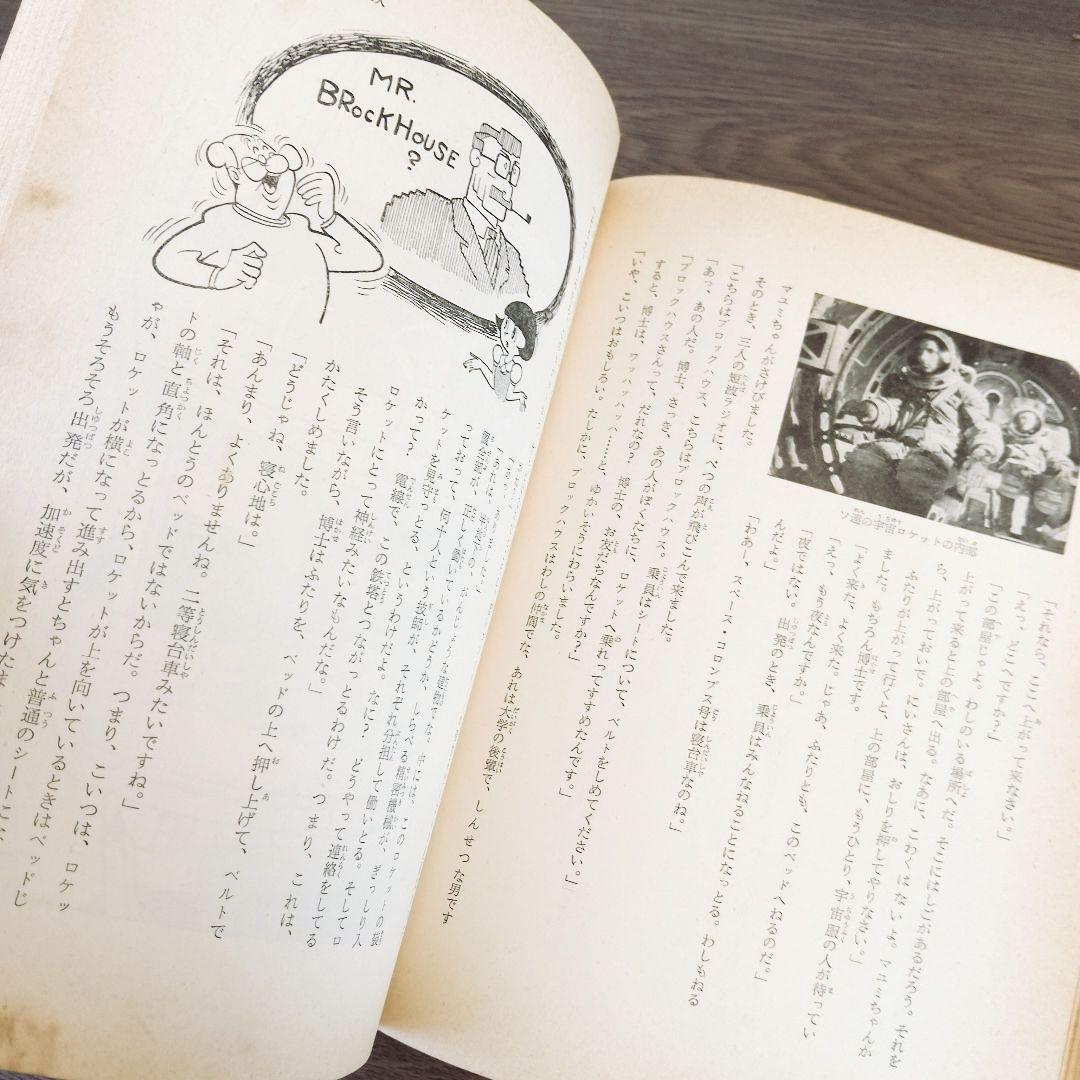 「それなら、ここへ上がって来なさい。」
「えっ、どこへですか？」
「この部屋じゃよ。わしのいる場所へだ。そこにはしごがあるだろう。それを
上がって来ると上の部屋へ出る。なあに、こわくはないよ。マユミちゃんか
ら、上がっておいで。にいさんは、おしりを押してやりなさい。」
ふたりが上がって行くと、上の部屋に、もうひとり、宇宙服の人が待ってい
ました。もちろん博士です。
「よく来た、よく来た。じゃあ、ふたりとも、このベッドへねるのだ。」
「えっ、もう夜なんですか。」
「夜ではない。出発のとき、乗員はみんなねることになっとる。わしもねる
んだよ。」
「わあー、スペース・コロンブス号は寝台車なのね。」
ソ連の宇宙ロケットの内部
マユミちゃんがさけびました。
そのとき、三人の短波ラジオに、べつの声が飛びこんで来ました。
「こちらはブロックハウス、こちらはブロックハウス。乗員はシートについて、ベルトをしめてください。」
「あっ、あの人だ。博士、さっき、あの人がぼくたちに、ロケットへ乗れってすすめたんです。」
「ブロックハウスさんって、だれなの？博士の、お友だちなんですか？」
すると、博士は、ワッハッハッハ……と、ゆかいそうにわらいました。
「いや、こいつはおもしろい。たしかに、ブロックハウスはわしの仲間でな、あれは大学の後輩で、しんせつな男です
MR.
BROCKHOUSE
?
がんじょうな建物でな、中には、このロケットの装
置全部が、正しく働いているかどうか、しらべる精密機械が、ぎっしり入
っておって、何十人という技師が、それぞれ分担して働いとる。そしてロ
ケットを見守っとる、というわけだよ。なに？　どうやって連絡をしてる
かって？　電線で、この鉄塔とつながっとるわけだ。つまり、これは、
ロケットにとって神経みたいなもんだな。」
そう言いながら、博士はふたりを、ベッドの上へ押し上げて、ベルトで
かたくしめました。
「どうじゃね、寝心地は。」
「あんまり、よくありませんね。二等寝台車みたいですね。」
「それは、ほんとうのベッドではないからだ。つまり、こいつは、ロケッ
トの軸と直角になっとるから、ロケットが上を向いているときはベッドじ
ゃが、ロケットが横になって進み出すとちゃんと普通のシートに
もうそろそろ出発だが、加速度に気をつけたま